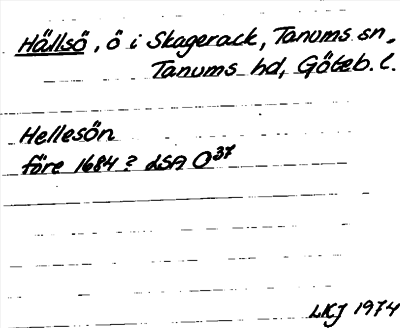 Hällsö, ö i Skagerack, Tanums sn,
Tanums hd, Göteb. l.
Hellesön
före 1684? LSA O37
LKJ 1974